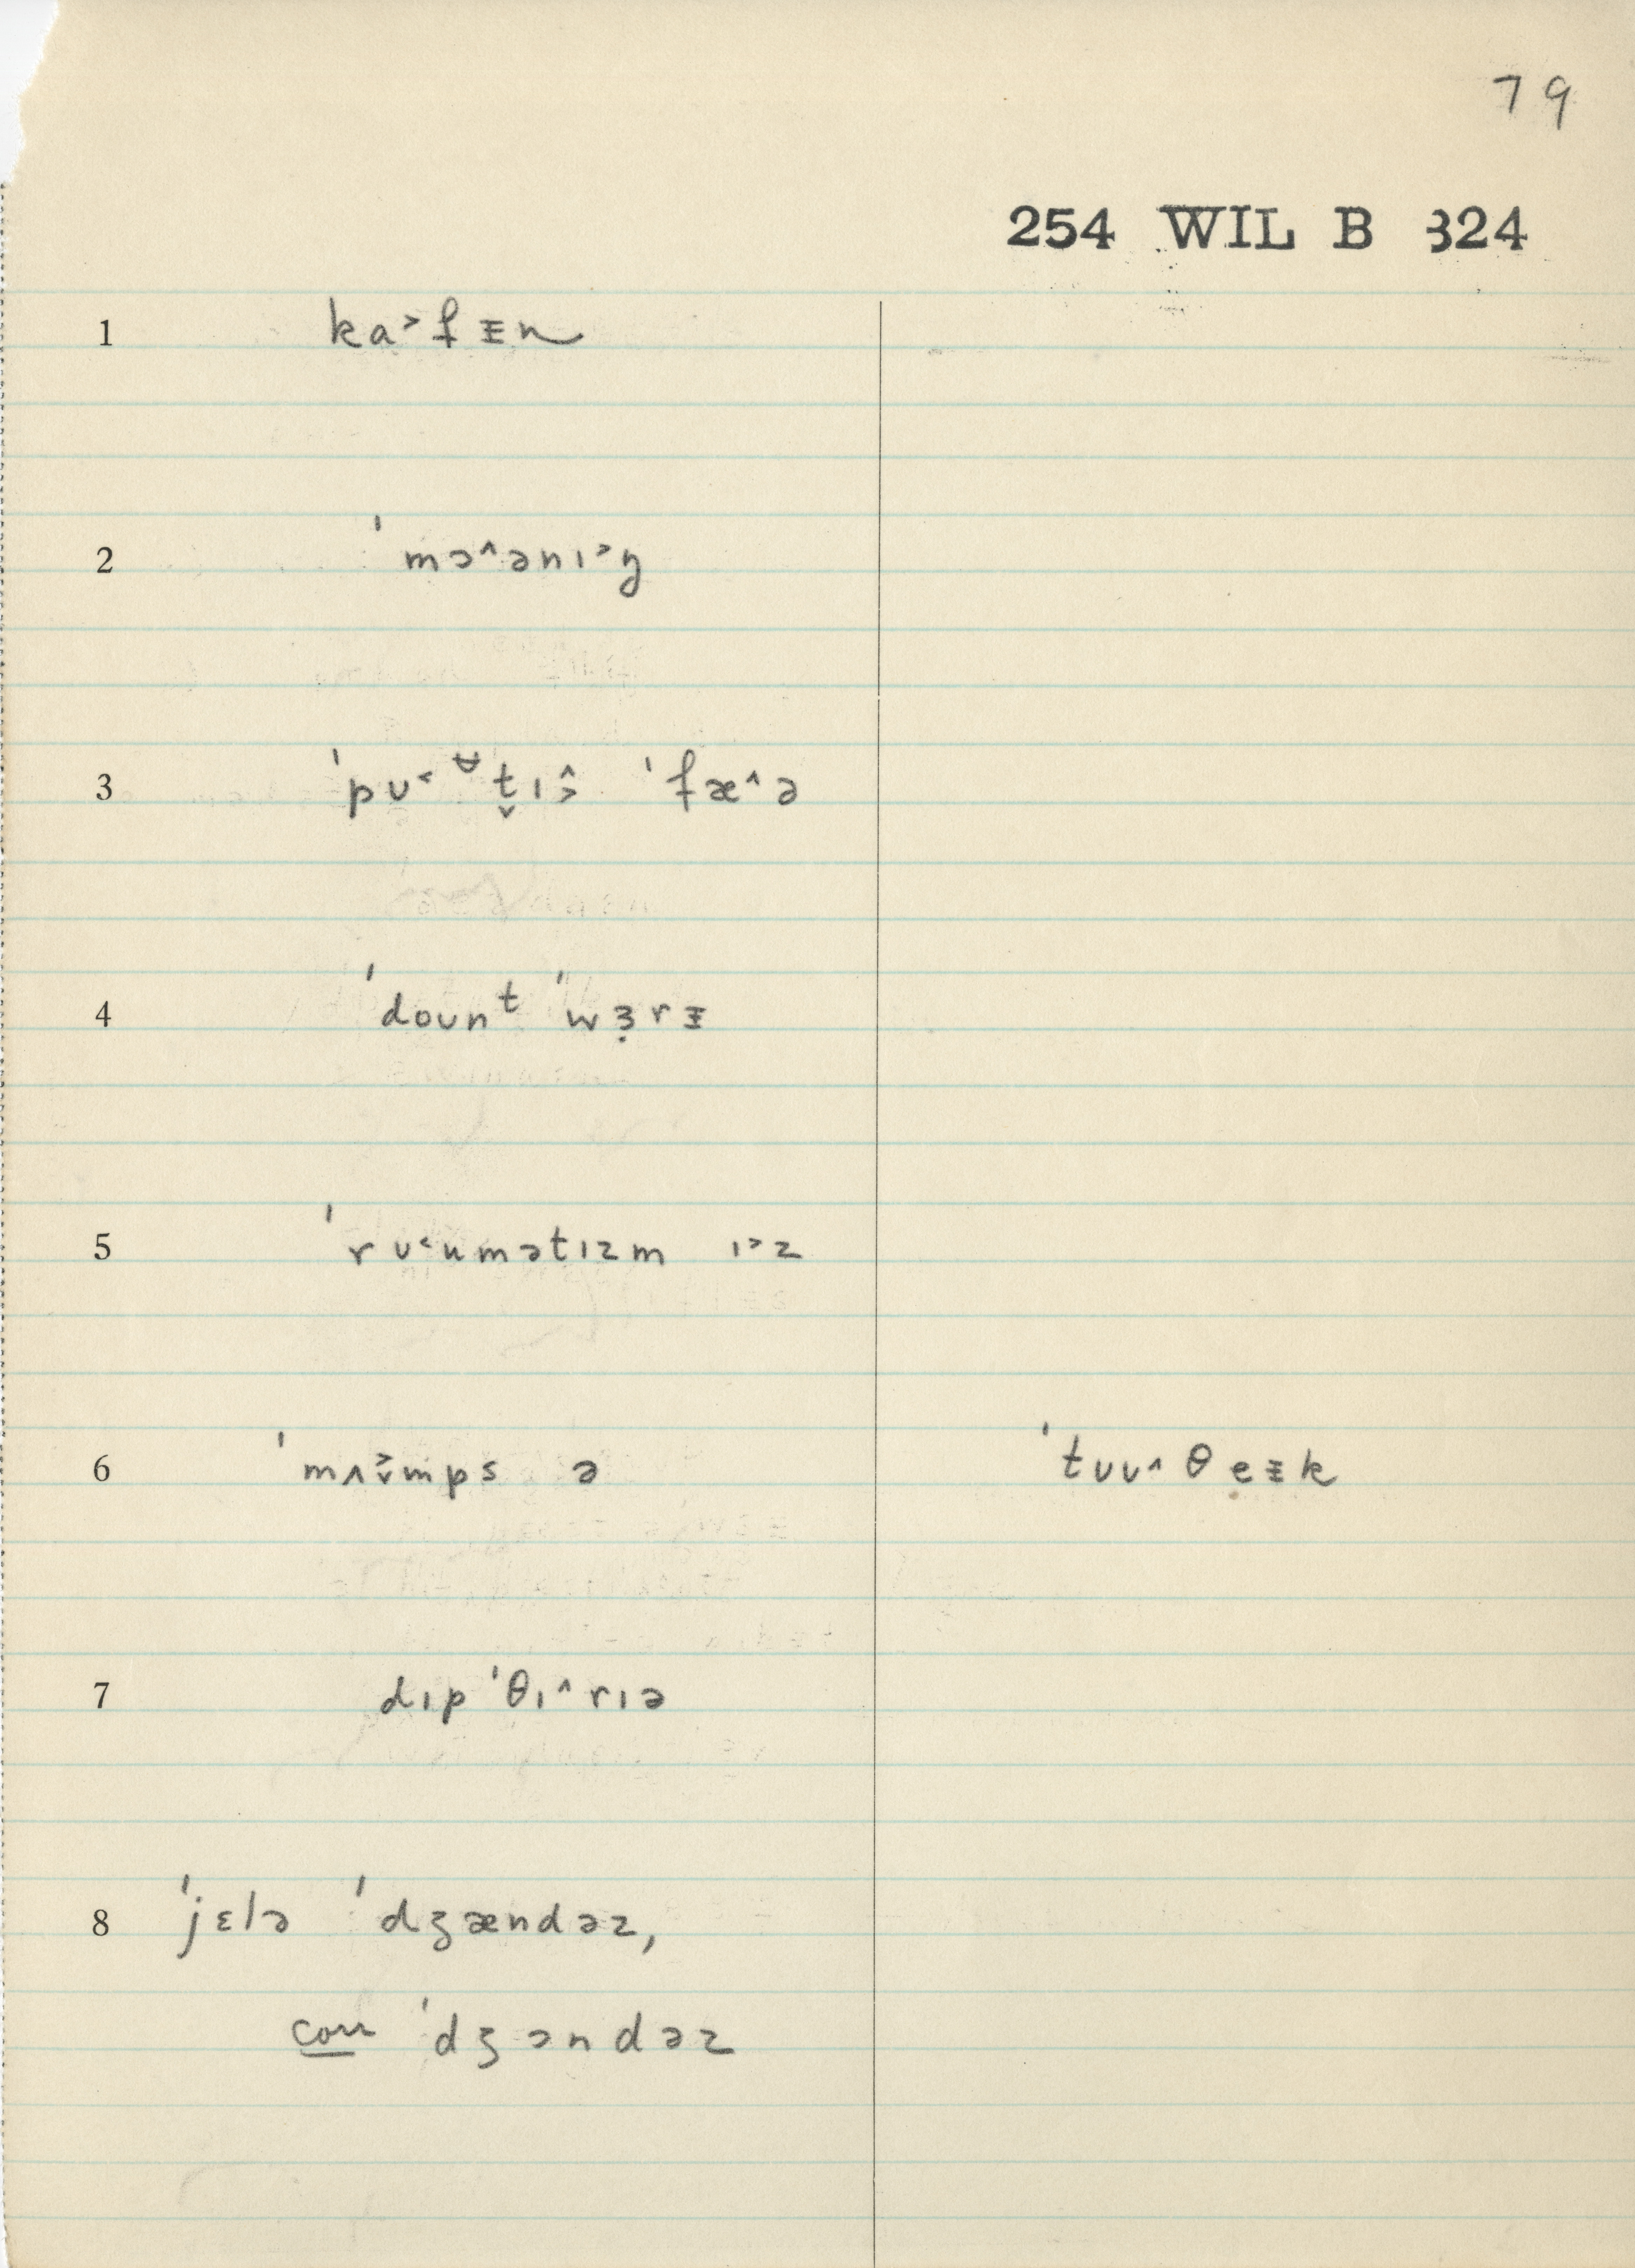 79
254 WIL B 324
1 ka˃fᵻn
2 ˈmɔ˄ənɪ˃ŋ
3 ˈpʊ˂ʊ̈t̬ɪ˄˃ ˈfæ˄ə
4 ˈdoʊnᵗ ˈwɜ̣rᵻ
5 ˈrʊ˂umətɪzm ɪ˃z
6 ˈmʌ˃˅mps ə ˈtʊu˄θeᵻk
7 dɪpˈθɪ˄rɪə
8 ˈjɛlə ˈdʒændəz,
corr ˈdʒɔndəz